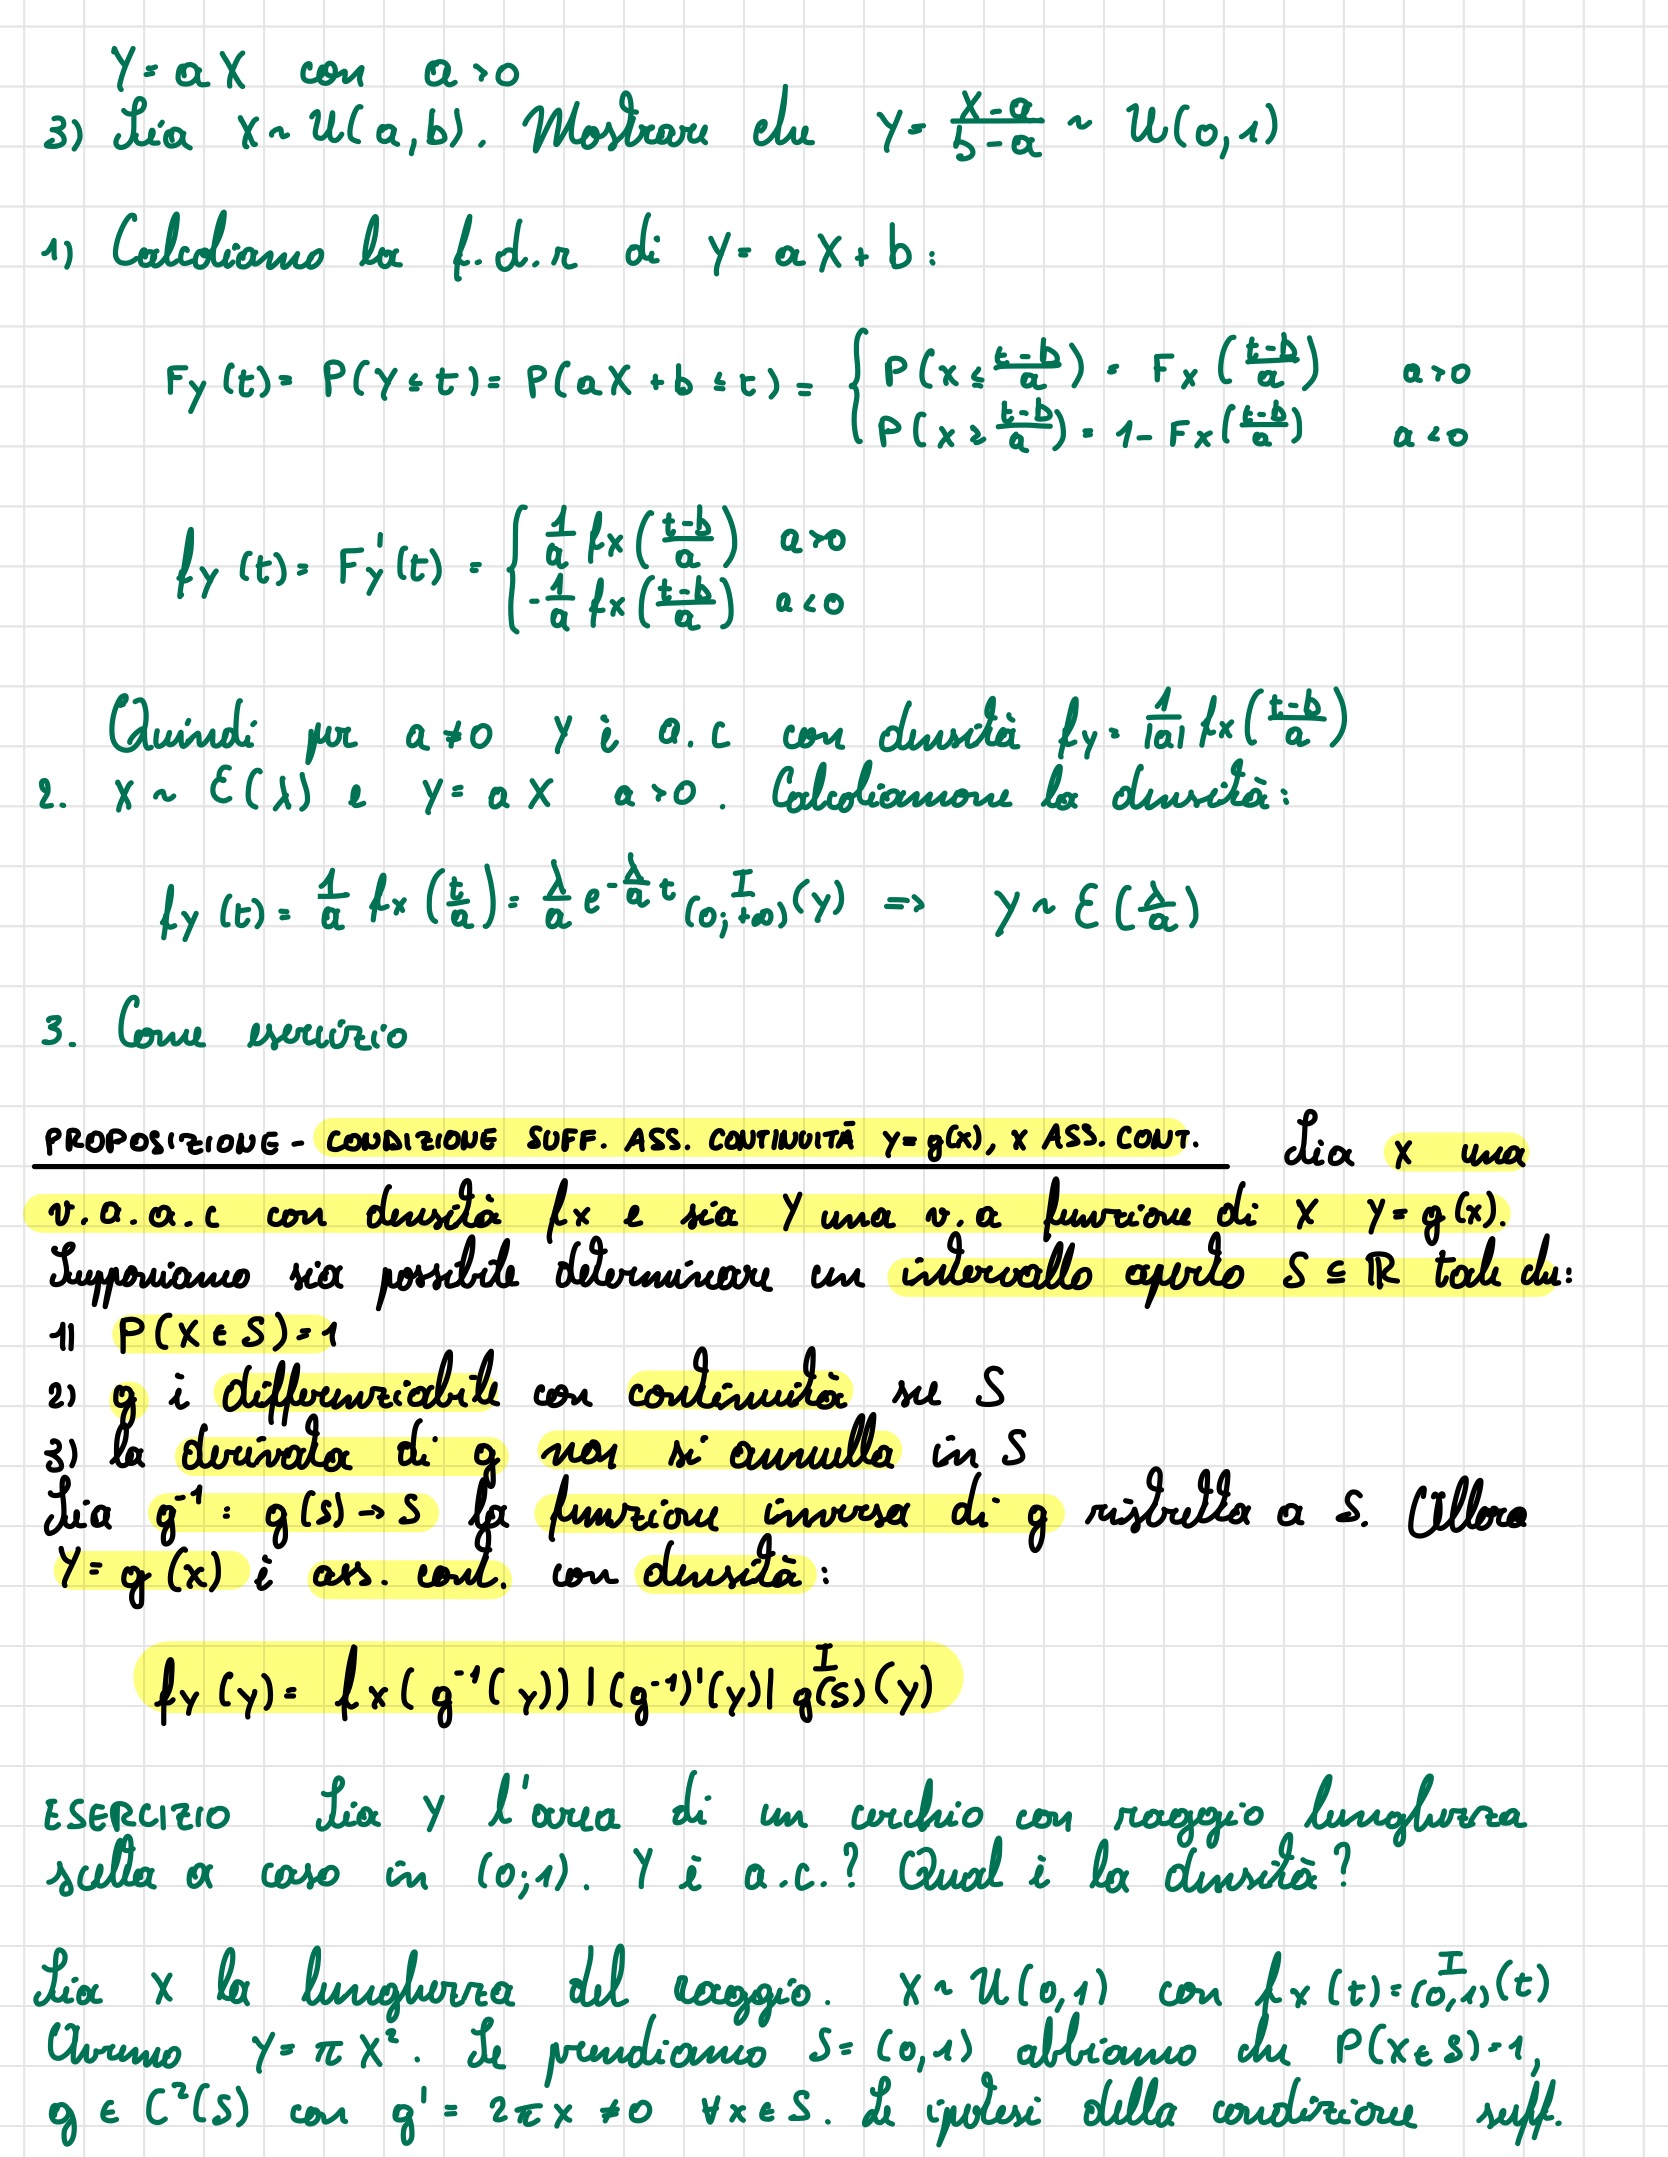 Y = aX con a > 0
3) Sia X ~ U(a,b). Mostrare che Y = (X-a)/(b-a) ~ U(0,1)
1) Calcoliamo la f.d.r di Y = aX + b:
F_Y(t) = P(Y ≤ t) = P(aX + b ≤ t) = { P(X ≤ (t-b)/a) = F_X((t-b)/a) a > 0
P(X ≥ (t-b)/a) = 1 - F_X((t-b)/a) a < 0
f_Y(t) = F_Y'(t) = { 1/a f_X((t-b)/a) a > 0
-1/a f_X((t-b)/a) a < 0
Quindi per a ≠ 0 Y è a.c con densità f_Y = 1/|a| f_X((t-b)/a)
2. X ~ ℰ(λ) e Y = aX a > 0. Calcoliamone la densità:
f_Y(t) = 1/a f_X(t/a) = λ/a e^{-λ/a t} I_{(0;+∞)}(y) => Y ~ ℰ(λ/a)
3. Come esercizio
PROPOSIZIONE - CONDIZIONE SUFF. ASS. CONTINUITÀ Y=g(X), X ASS. CONT. Sia X una
v.a.a.c con densità f_X e sia Y una v.a funzione di X Y = g(X).
Supponiamo sia possibile determinare un intervallo aperto S ⊆ ℝ tale che:
1) P(X ∈ S) = 1
2) g è differenziabile con continuità su S
3) la derivata di g non si annulla in S
Sia g⁻¹ : g(S) → S la funzione inversa di g ristretta a S. Allora
Y = g(X) è ass. cont. con densità:
f_Y(y) = f_X(g⁻¹(y)) |(g⁻¹)'(y)| I_{g(S)}(y)
ESERCIZIO Sia Y l'area di un cerchio con raggio lunghezza
scelta a caso in (0;1). Y è a.c.? Qual è la densità?
Sia X la lunghezza del raggio. X ~ U(0,1) con f_X(t) = I_{(0,1)}(t)
Avremo Y = πX². Se prendiamo S = (0,1) abbiamo che P(X ∈ S) = 1,
g ∈ C²(S) con g' = 2πx ≠ 0 ∀x ∈ S. Le ipotesi della condizione suff.